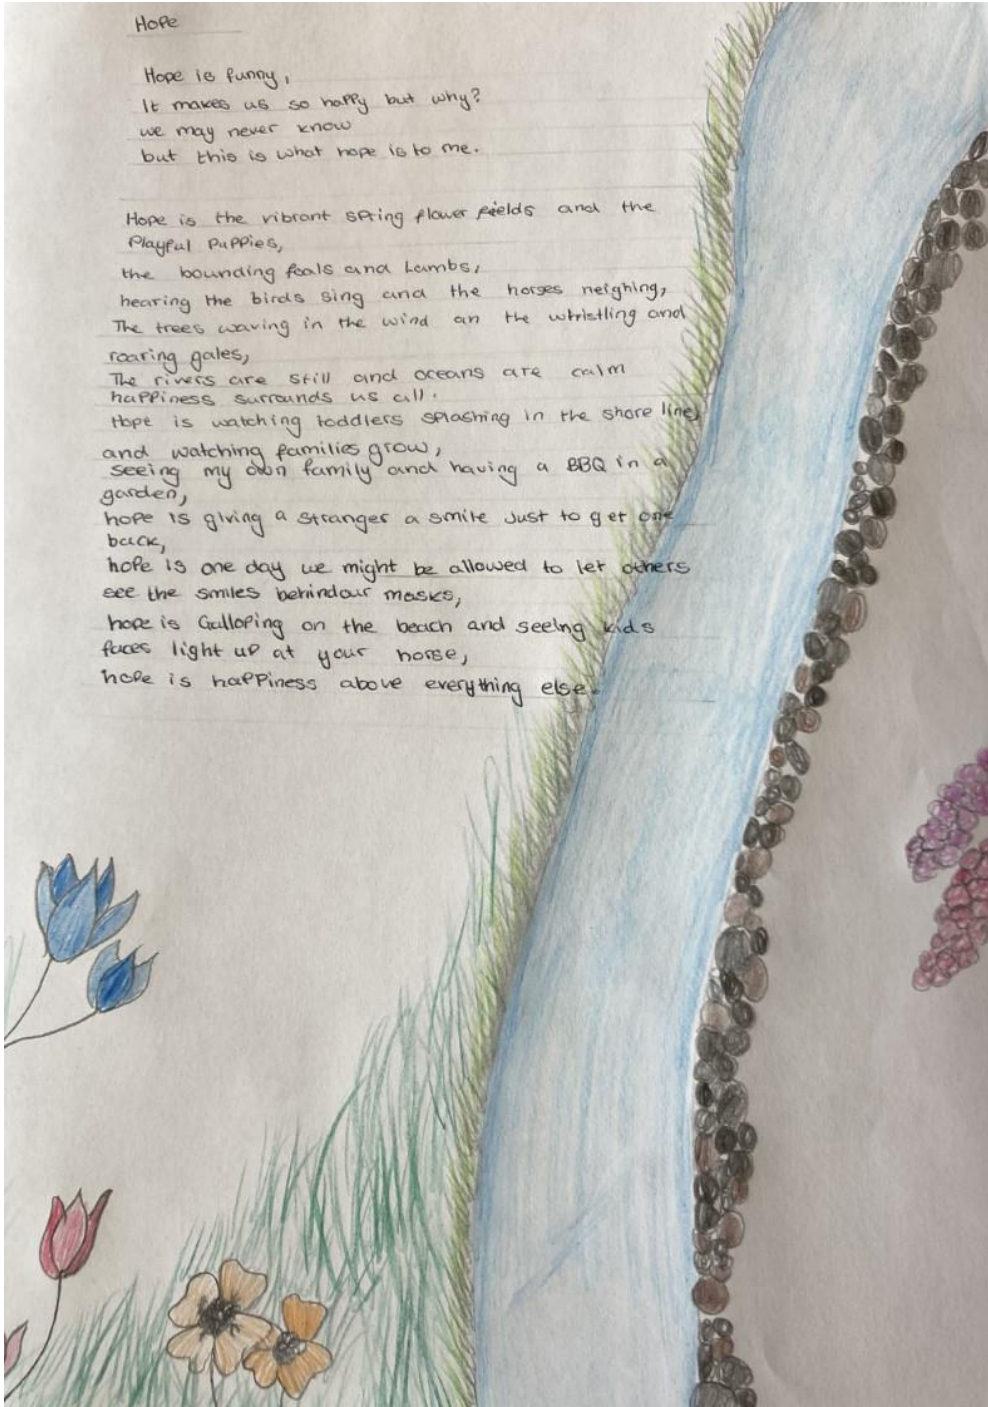 Hope
Hope is funny,
It makes us so happy but why?
we may never know
but this is what hope is to me.
Hope is the vibrant spring flower fields and the
Playful Puppies,
the bounding foals and Lambs,
hearing the birds sing and the horses neighing,
The trees waving in the wind an the whistling and
roaring gales,
The rivers are still and oceans are calm
happiness surrounds us all.
Hope is watching toddlers splashing in the shore line,
and watching families grow,
seeing my own family and having a BBQ in a
garden,
hope is giving a stranger a smile Just to get one
back,
hope is one day we might be allowed to let others
see the smiles behindour masks,
hope is Galloping on the beach and seeing kids
faces light up at your horse,
hope is happiness above everything else.